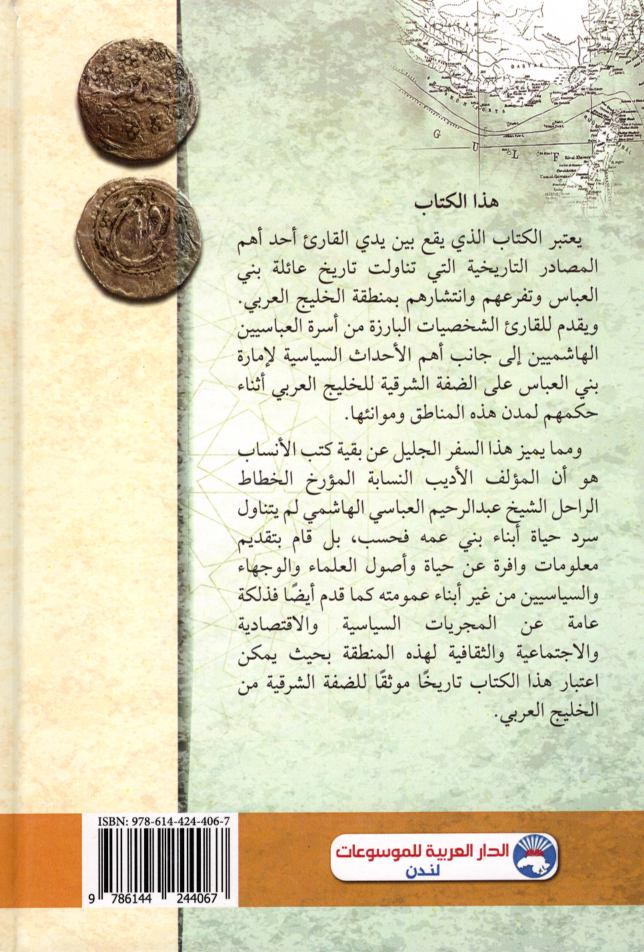 G U L F
هذا الكتاب
يعتبر الكتاب الذي يقع بين يدي القارئ أحد أهم
المصادر التاريخية التي تناولت تاريخ عائلة بني
العباس وتفرعهم وانتشارهم بمنطقة الخليج العربي.
ويقدم للقارئ الشخصيات البارزة من أسرة العباسيين
الهاشميين إلى جانب أهم الأحداث السياسية لإمارة
بني العباس على الضفة الشرقية للخليج العربي أثناء
حكمهم لمدن هذه المناطق وموانئها.
ومما يميز هذا السفر الجليل عن بقية كتب الأنساب
هو أن المؤلف الأديب النسابة المؤرخ الخطاط
الراحل الشيخ عبدالرحيم العباسي الهاشمي لم يتناول
سرد حياة أبناء بني عمه فحسب، بل قام بتقديم
معلومات وافرة عن حياة وأصول العلماء والوجهاء
والسياسيين من غير أبناء عمومته كما قدم أيضًا فذلكة
عامة عن المجريات السياسية والاقتصادية
والاجتماعية والثقافية لهذه المنطقة بحيث يمكن
اعتبار هذا الكتاب تاريخًا موثقًا للضفة الشرقية من
الخليج العربي.
ISBN: 978-614-424-406-7
9 786144 244067
الدار العربية للموسوعات
لندن